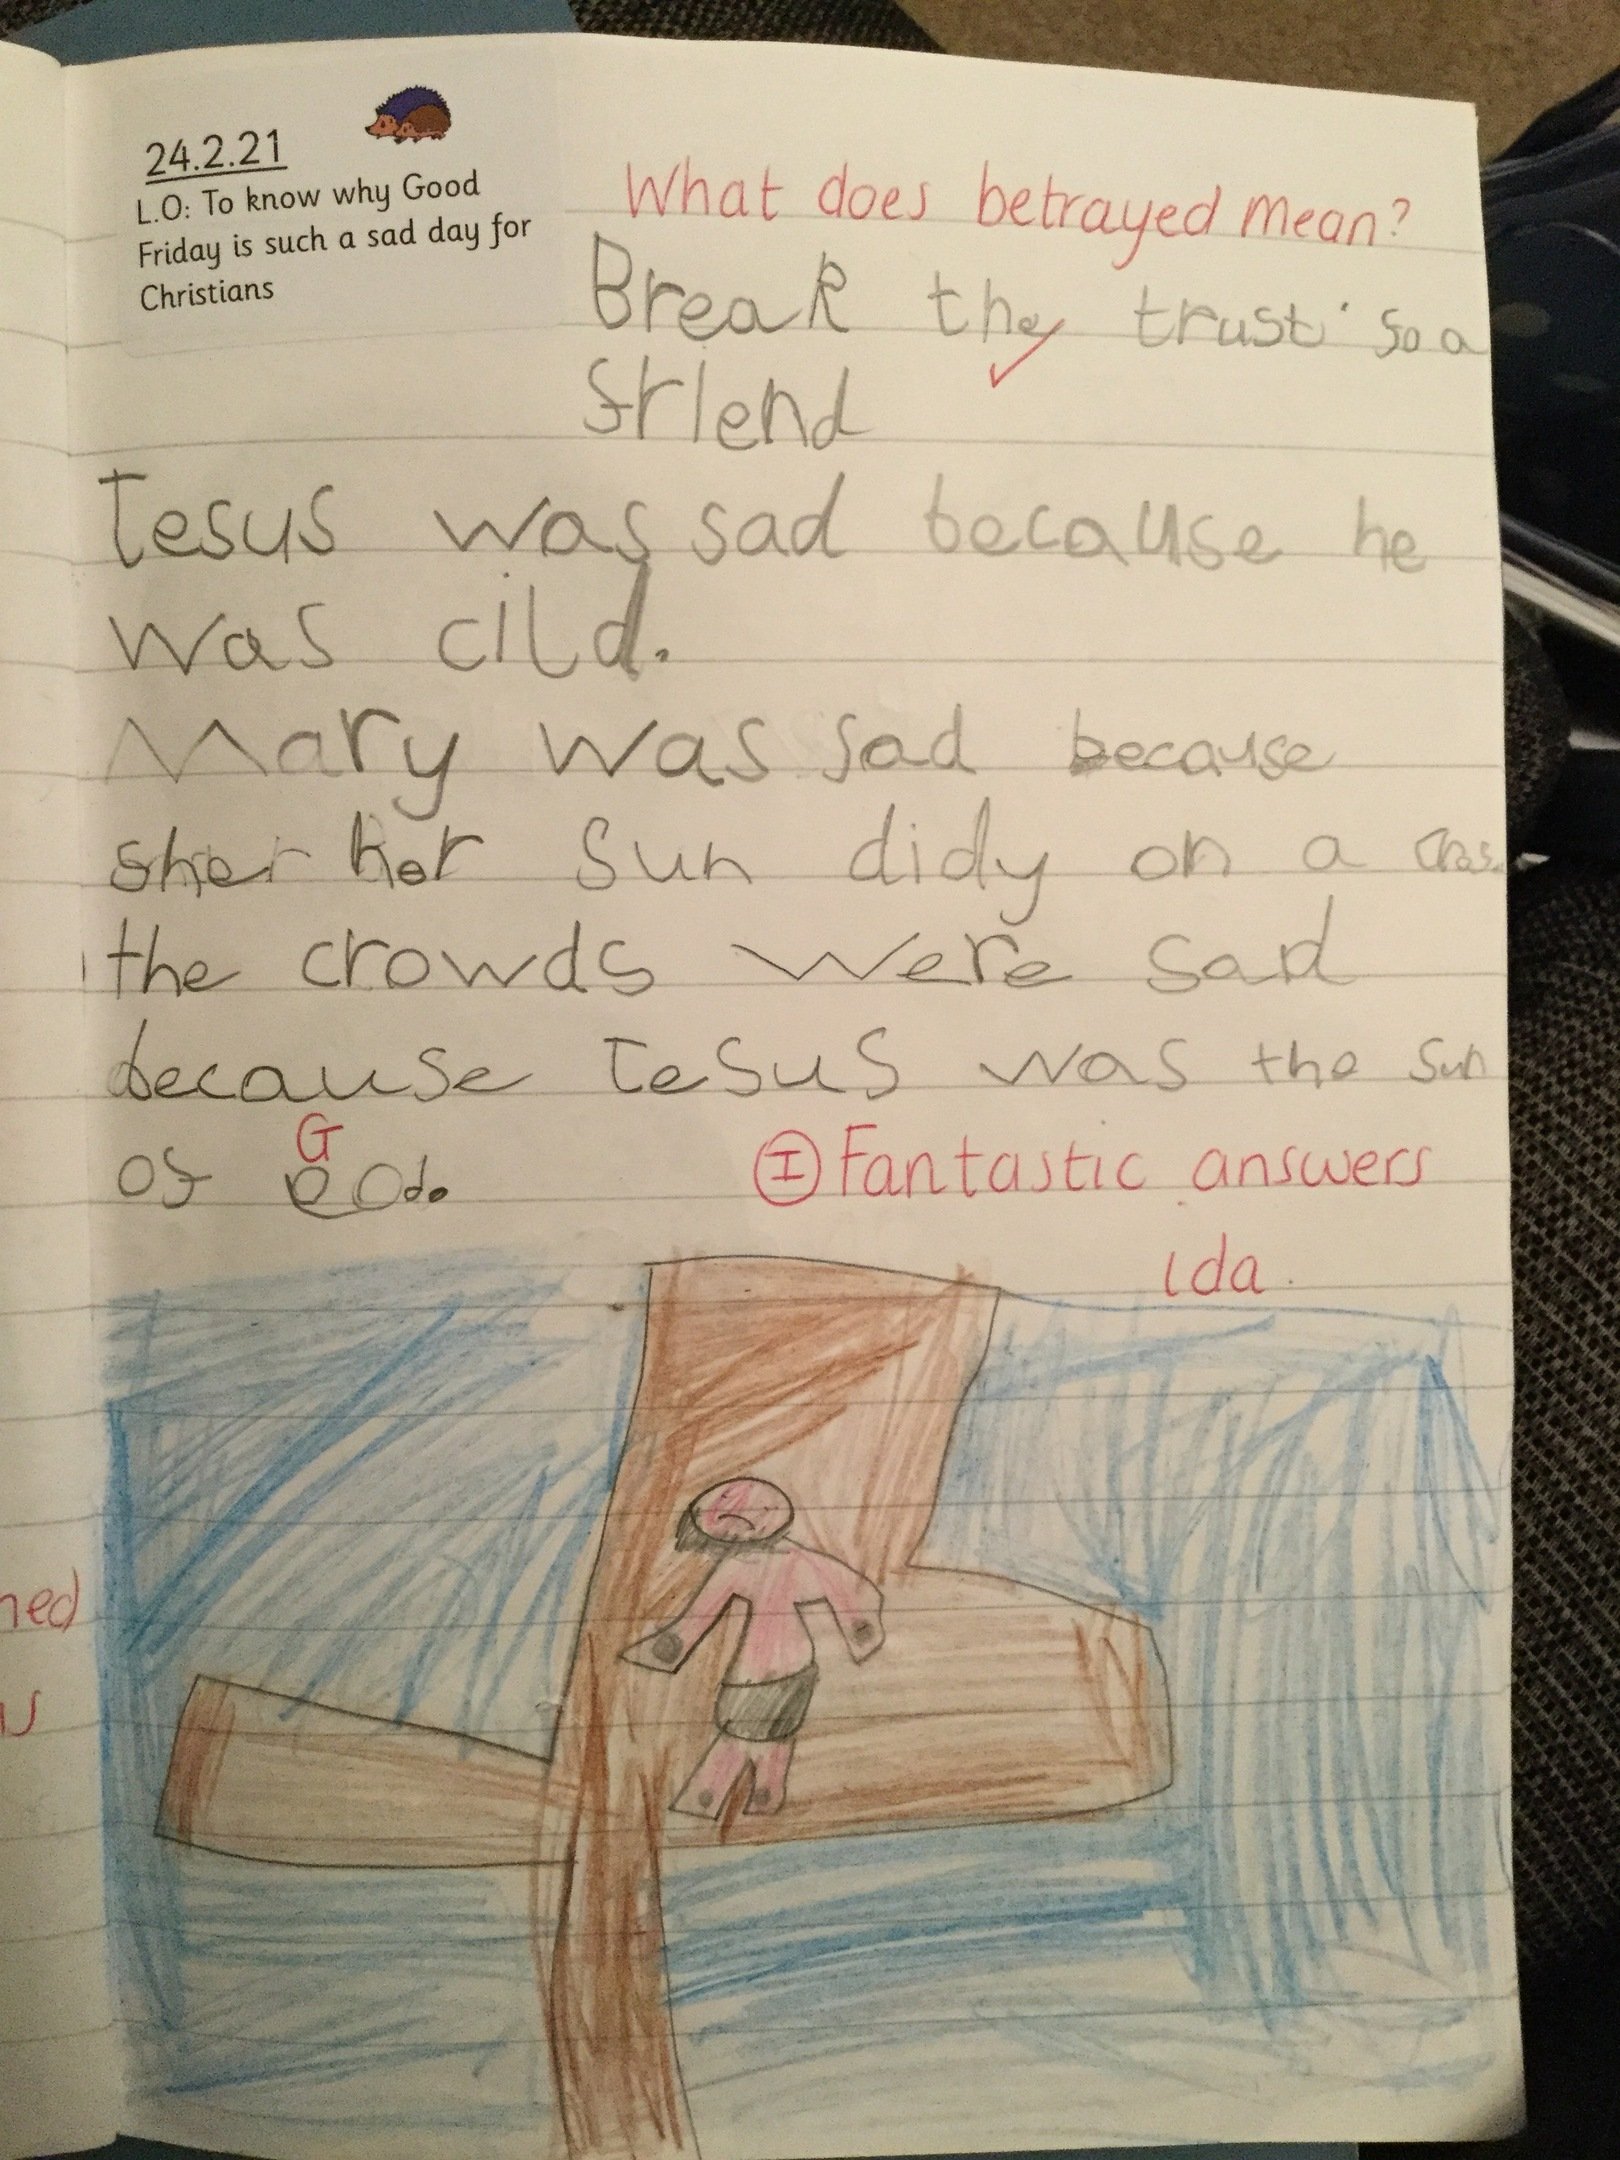 24.2.21
L.O: To know why Good
Friday is such a sad day for
Christians
What does betrayed mean?
Break the trust so a
friend
Tesus was sad because he
was cild.
Mary was sad because
sher her sun didy on a cros
the crowds were sad
because Tesus was the sun
of God.
G
I Fantastic answers
Ida
ned